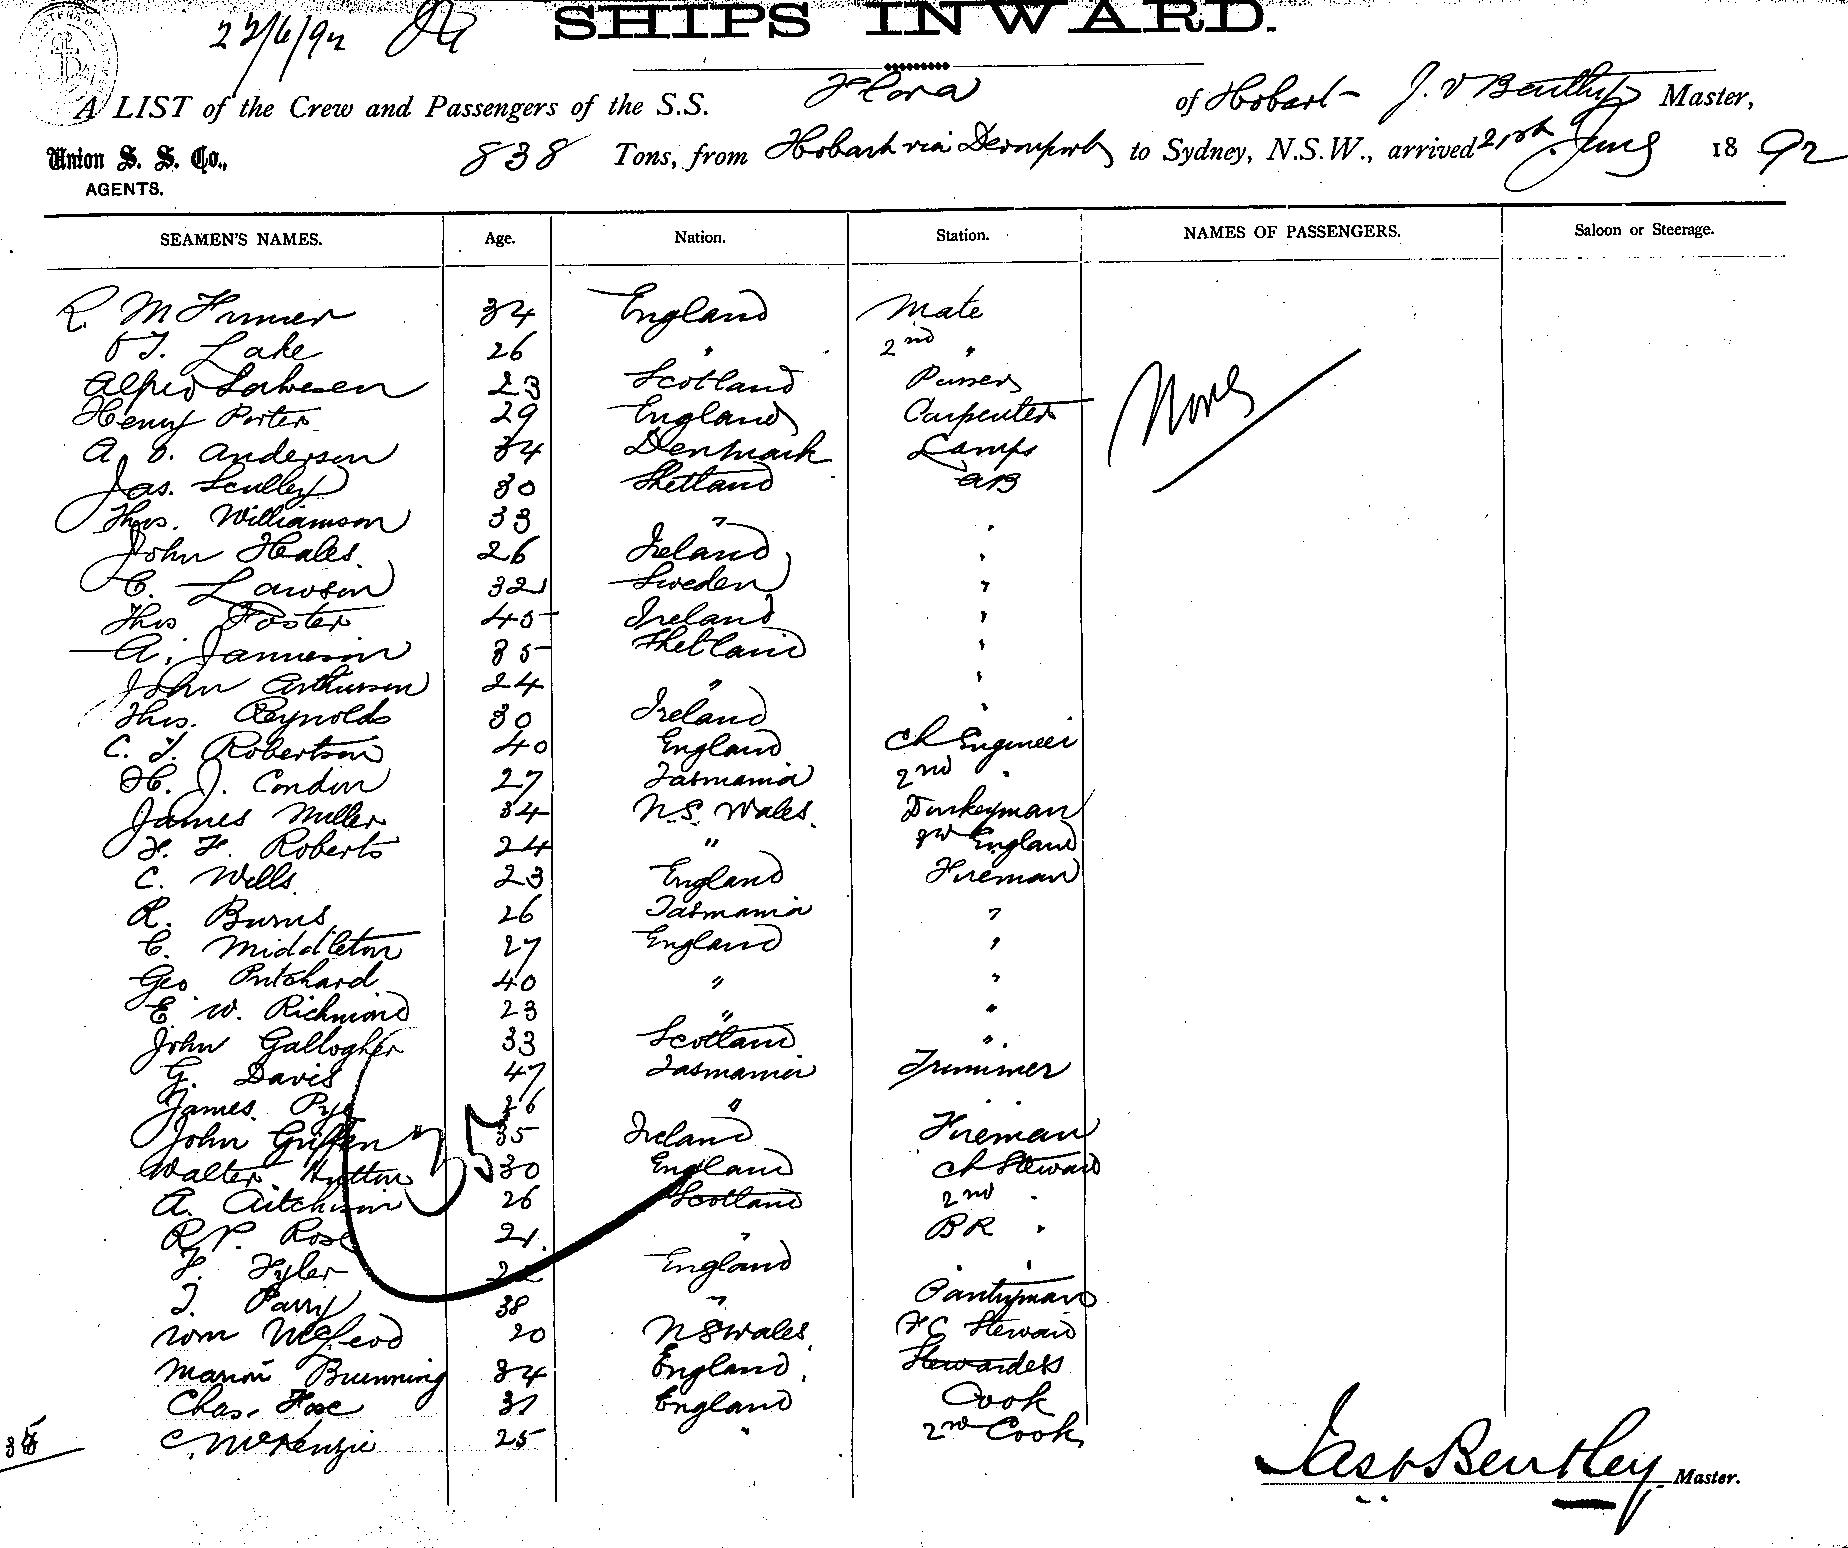 22/6/92
SHIPS INWARD.
A LIST of the Crew and Passengers of the S.S. Flora of Hobart J. V Bentley Master,
Union S. S. Co., AGENTS. 838 Tons, from Hobart via Devonport to Sydney, N.S.W., arrived 21st June 1892
SEAMEN'S NAMES. Age. Nation. Station. NAMES OF PASSENGERS. Saloon or Steerage.
R. M 34 England Mate
Lake 26 " 2nd "
Alfred 23 Scotland Purser
Henry Porter 29 England Carpenter
A. O. Anderson 34 Denmark Lamps
Jas. Sculley 30 Shetland AB
Thos. Williamson 33 " "
John Heales. 26 Ireland "
C. Lawson 32 Sweden "
Thos Foster 40 Ireland "
A. Jamieson 35 Shetland "
John Arthurson 24 " "
Thos. Reynolds 30 Ireland "
C. T. Robertson 40 England Ch Engineer
H. J. Condon 27 Tasmania 2nd "
James Miller 34 N.S. Wales. Donkeyman
F. F. Roberts 24 " England
C. Wells. 23 England Fireman
R. Burns 26 Tasmania "
C. Middleton 27 England "
Geo Pritchard 40 " "
E. W. Richmond 23 " "
John Gallogher 33 Scotland "
G. Davis 47 Tasmania Trimmer
James. Pye 26 " "
John Griffen 35 Ireland Fireman
Walter Hutton 30 England Ch Steward
A. Aitchison 26 Scotland 2nd "
R. P. Rose 21. " BR "
F. Tyler 22 England " "
T. Parry 38 " Pantryman
Wm McLeod 20 N S Wales F C Steward
Brunning 34 England. Stewardess
Chas. Fose 31 England Cook
C. McKenzie 25 " 2nd Cook
None
35
Jas V Bentley Master.